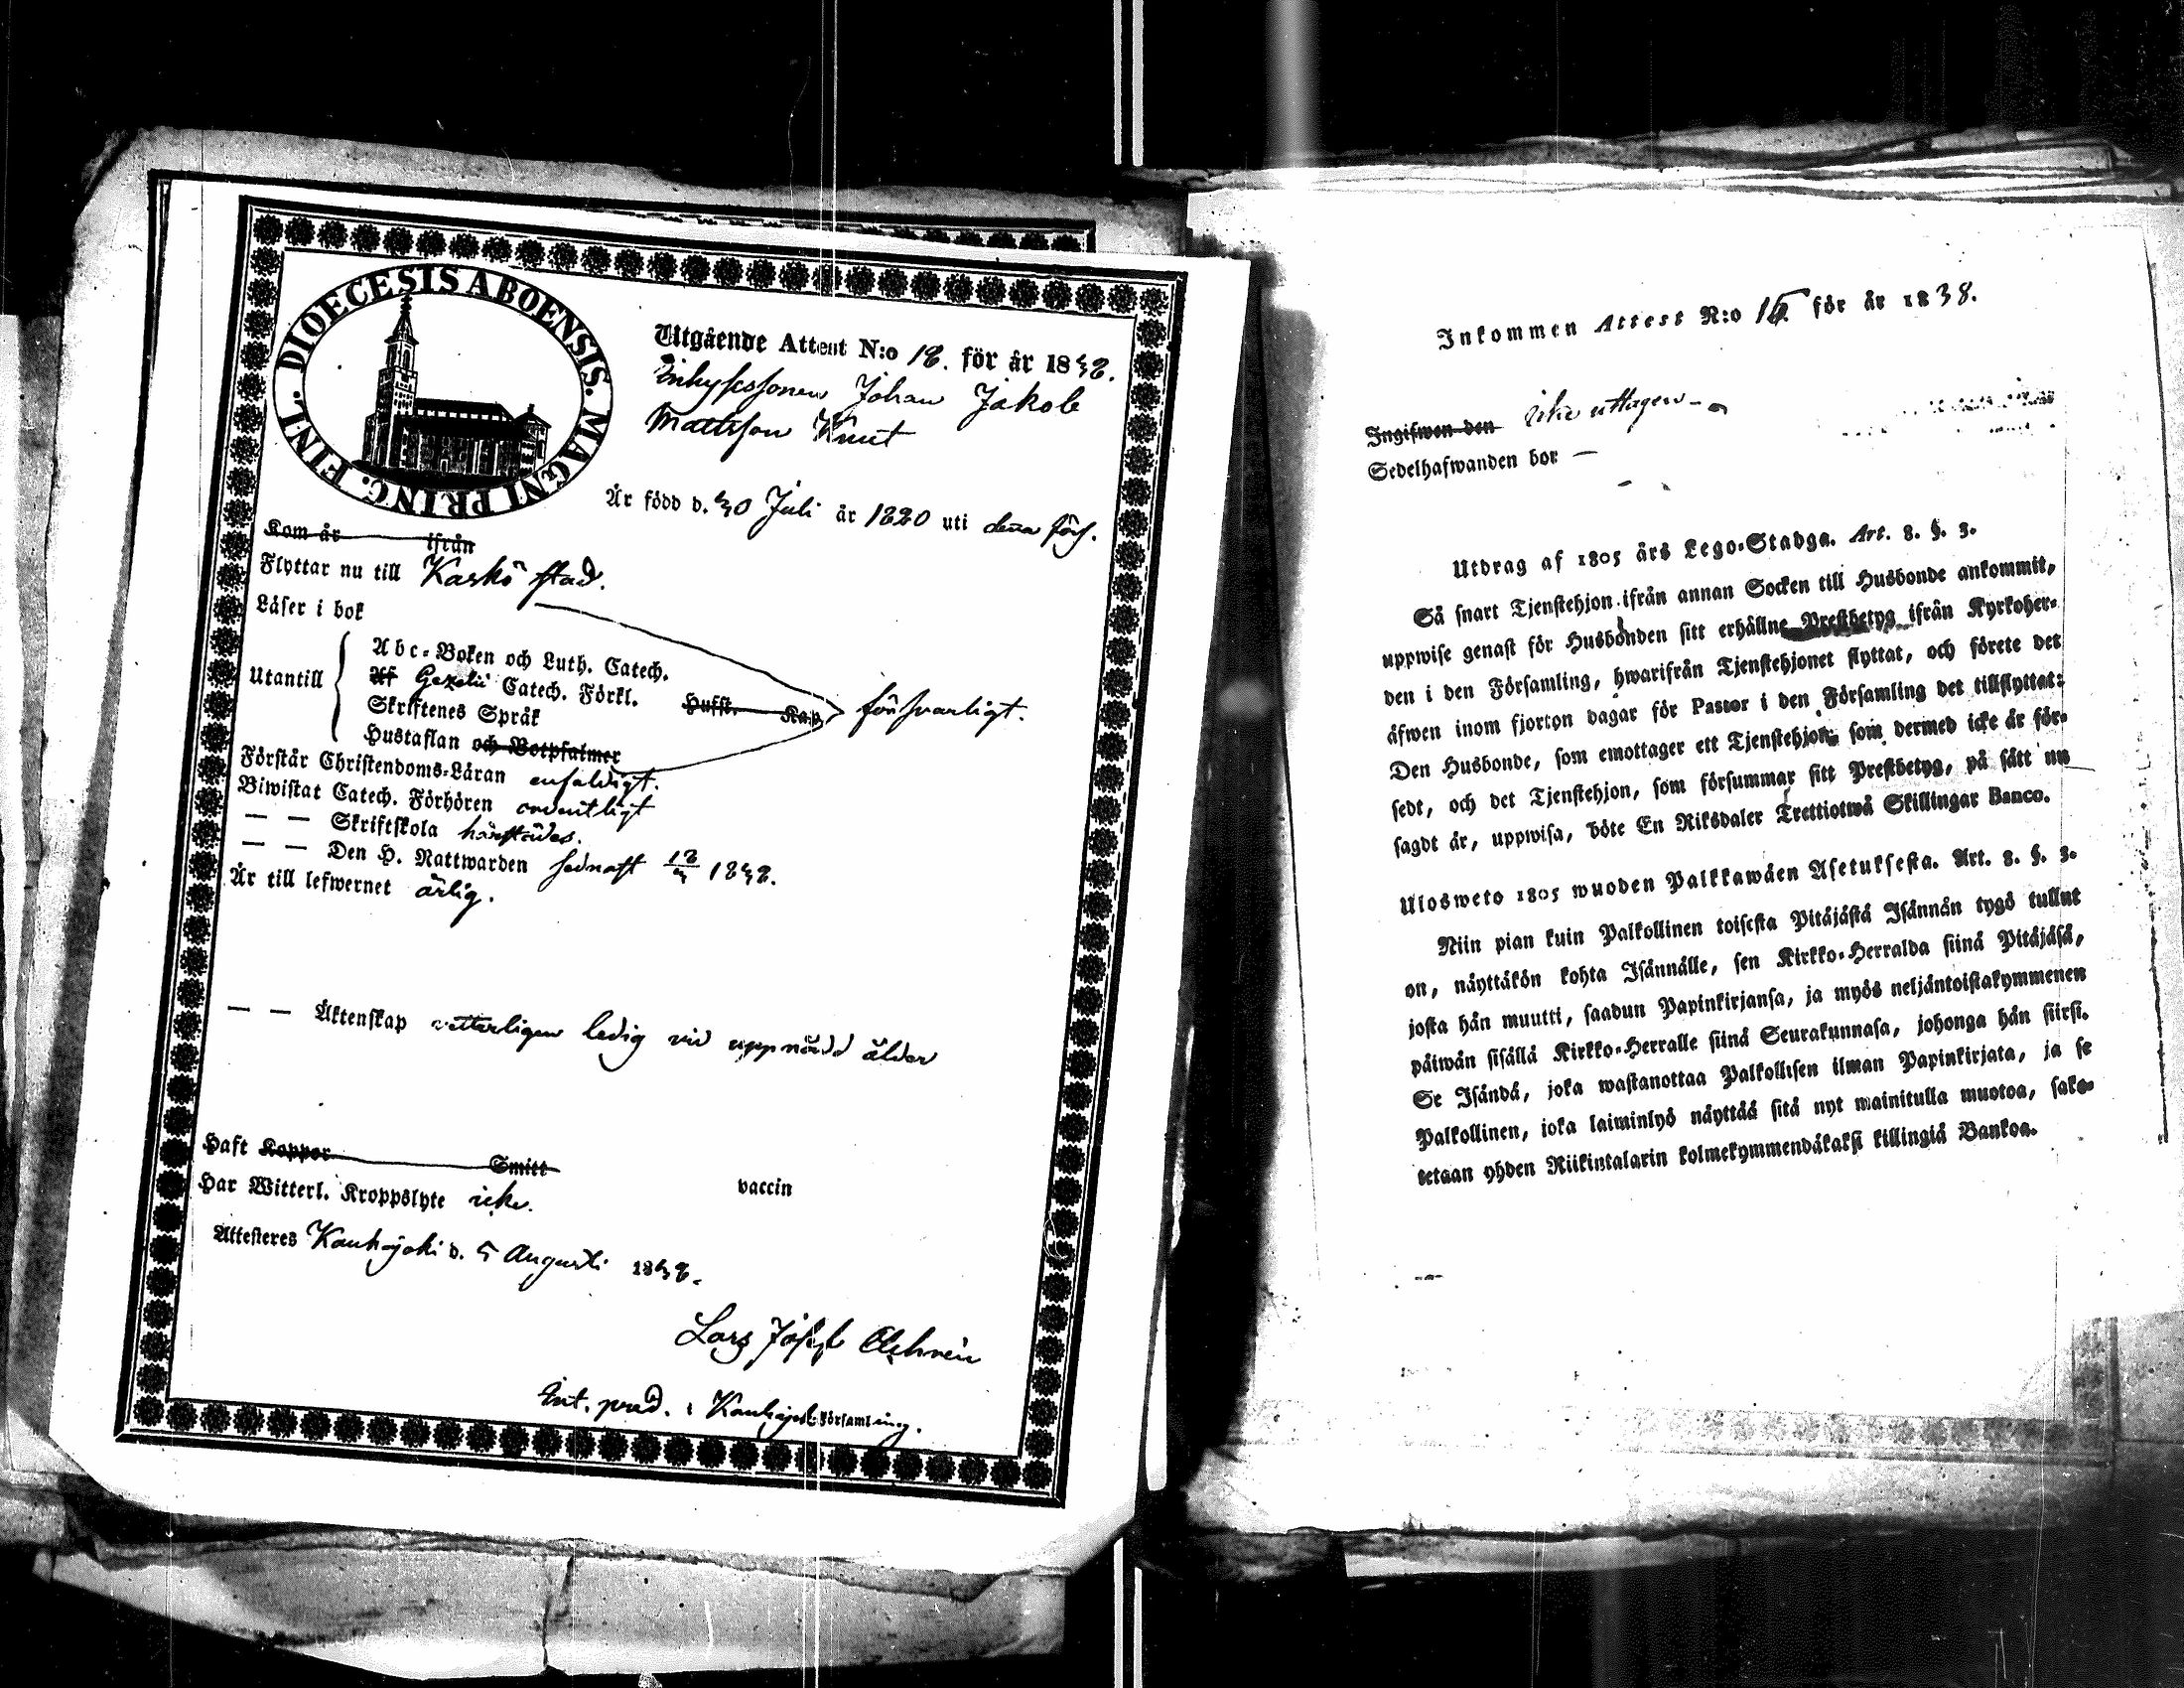 DIOECESIS ABOENSIS. MAGNI PRINC. FINL.
Utgående Attest N:o 18. för år 1838.
Inhysessonen Johan Jakob
Mattsson Knut
Är född d. 30 Juli år 1820 uti denna förs.
Kom år ifrån
Flyttar nu till Kaskö stad.
Läser i bok
Utantill
Abc-Boken och Luth. Catech.
Af Gezelii Catech. Förkl.
Skriftenes Språk Hufst. Kap. försvarligt.
Hustaflan och Botpsalmer
Förstår Christendoms-Läran enfaldigt.
Biwistat Catech. Förhören ordentligt
— — Skriftskola härstädes.
— — Den H. Nattwarden sednast 1838.
Är till lefwernet ärlig.
— — Äktenskap vetterligen ledig vid uppnådd ålder
Haft Koppor Smitt vaccin
Har Witterl. Kroppslyte icke.
Attesteres Kauhajoki d. 5 Augusti 1838.
Lars Josef
i Kauhajoki Församling.
Inkommen Attest N:o 16. för år 1838.
Ingifwen den icke uttagen —
Sedelhafwanden bor —
Utdrag af 1805 års Lego-Stadga. Art. 8. §. 3.
Så snart Tjenstehjon ifrån annan Socken till Husbonde ankommit,
uppwise genast för Husbonden sitt erhållne Prestbetyg ifrån Kyrkoher-
den i den Församling, hwarifrån Tjenstehjonet flyttat, och förete det
äfwen inom fjorton dagar för Pastor i den Församling det tillflyttat:
Den Husbonde, som emottager ett Tjenstehjon, som dermed icke är för-
sedt, och det Tjenstehjon, som försummar sitt Prestbetyg, på sätt nu
sagdt är, uppwisa, böte En Riksdaler Trettiotwå Skillingar Banco.
Ulosweto 1805 wuoden Palkkawäen Asetuksesta. Art. 8. §. 3.
Niin pian kuin Palkollinen toisesta Pitäjästä Isännän tygö tullut
on, näyttäkön kohta Isännälle, sen Kirkko-Herralda siinä Pitäjäsä,
josta hän muutti, saadun Papinkirjansa, ja myös neljäntoistakymmenen
päiwän sisällä Kirkko-Herralle siinä Seurakunnasa, johonga hän siirsi.
Se Isändä, joka wastanottaa Palkollisen ilman Papinkirjata, ja se
Palkollinen, joka laiminlyö näyttää sitä nyt mainitulla muotoa, sako-
tetaan yhden Riikintalarin kolmekymmendäkaksi killingiä Bankoa.